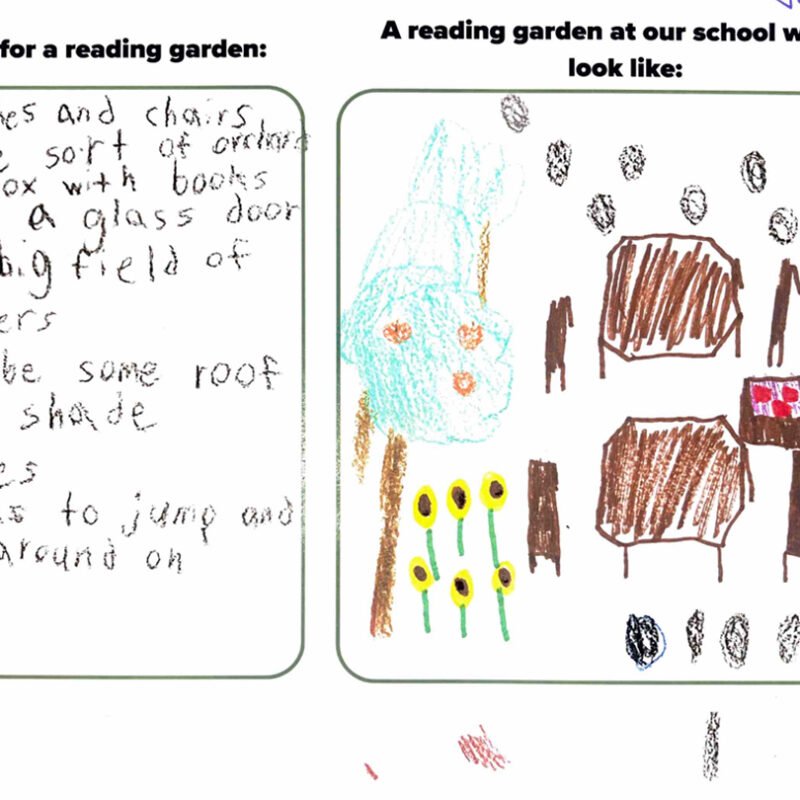 for a reading garden:
es and chairs
e sort of orchard
ox with books
a glass door
big field of
ers
be some roof
shade
es
s to jump and
around on
A reading garden at our school w
look like: